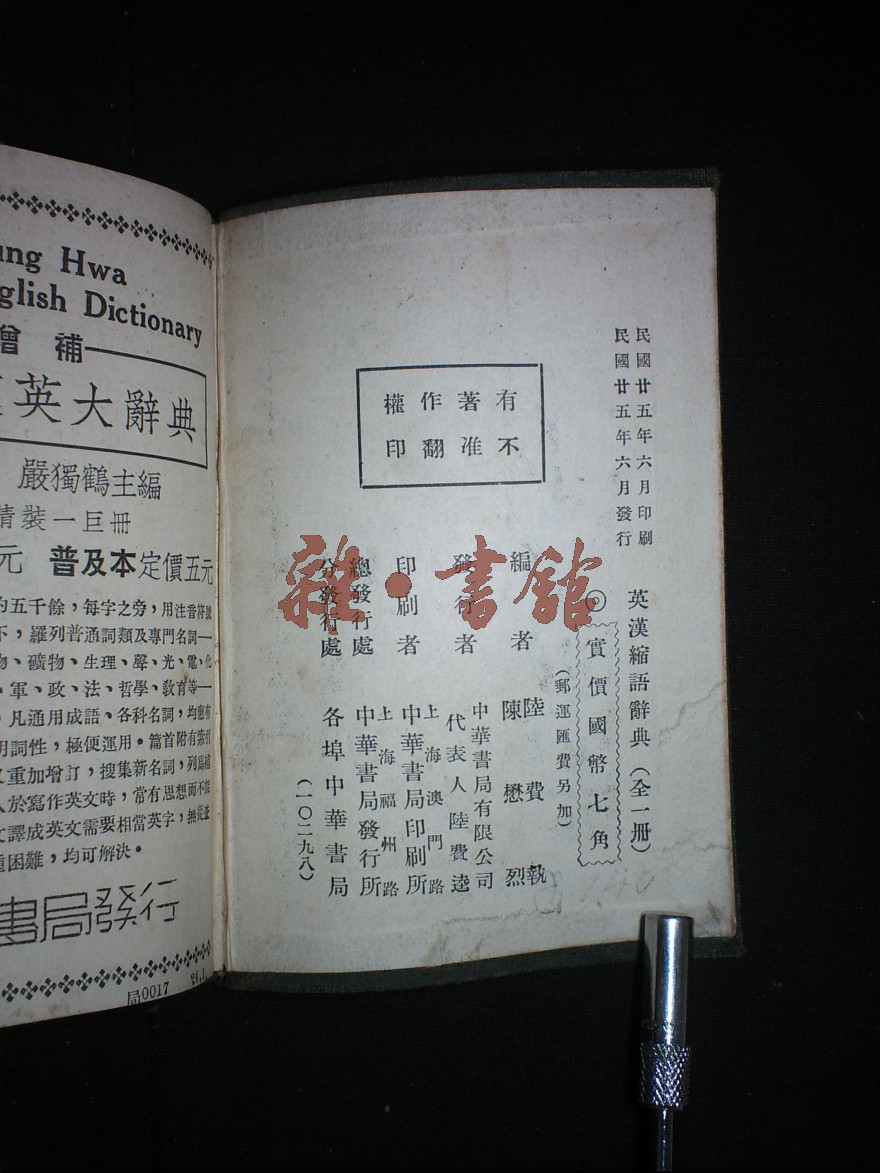 ung Hwa
glish Dictionary
增補
英大辭典
嚴獨鶴主編
精裝一巨冊
元 普及本定價五元
約五千餘，每字之旁，用注音符號
下，羅列普通詞類及專門名詞—
物、礦物、生理、聲、光、電、化
、軍、政、法、哲學、敎育等—
凡通用成語、各科名詞，均應有
明詞性，極便運用。篇首附有索引
又重加增訂，搜集新名詞，列爲補
人於寫作英文時，常有思想而不能
文譯成英文需要相當英字，無從查
困難，均可解決。
書局發行
局0017
民國廿五年六月印刷
民國廿五年六月發行
有著作權
不准翻印
英漢縮語辭典（全一冊）
◎實價國幣七角
（郵運匯費另加）
編者 陸費執
陳懋烈
發行者 中華書局有限公司
代表人陸費逵
印刷者 上海澳門路
中華書局印刷所
總發行處 上海福州路
中華書局發行所
分發行處 各埠中華書局
（一〇二九八）
雜·書館